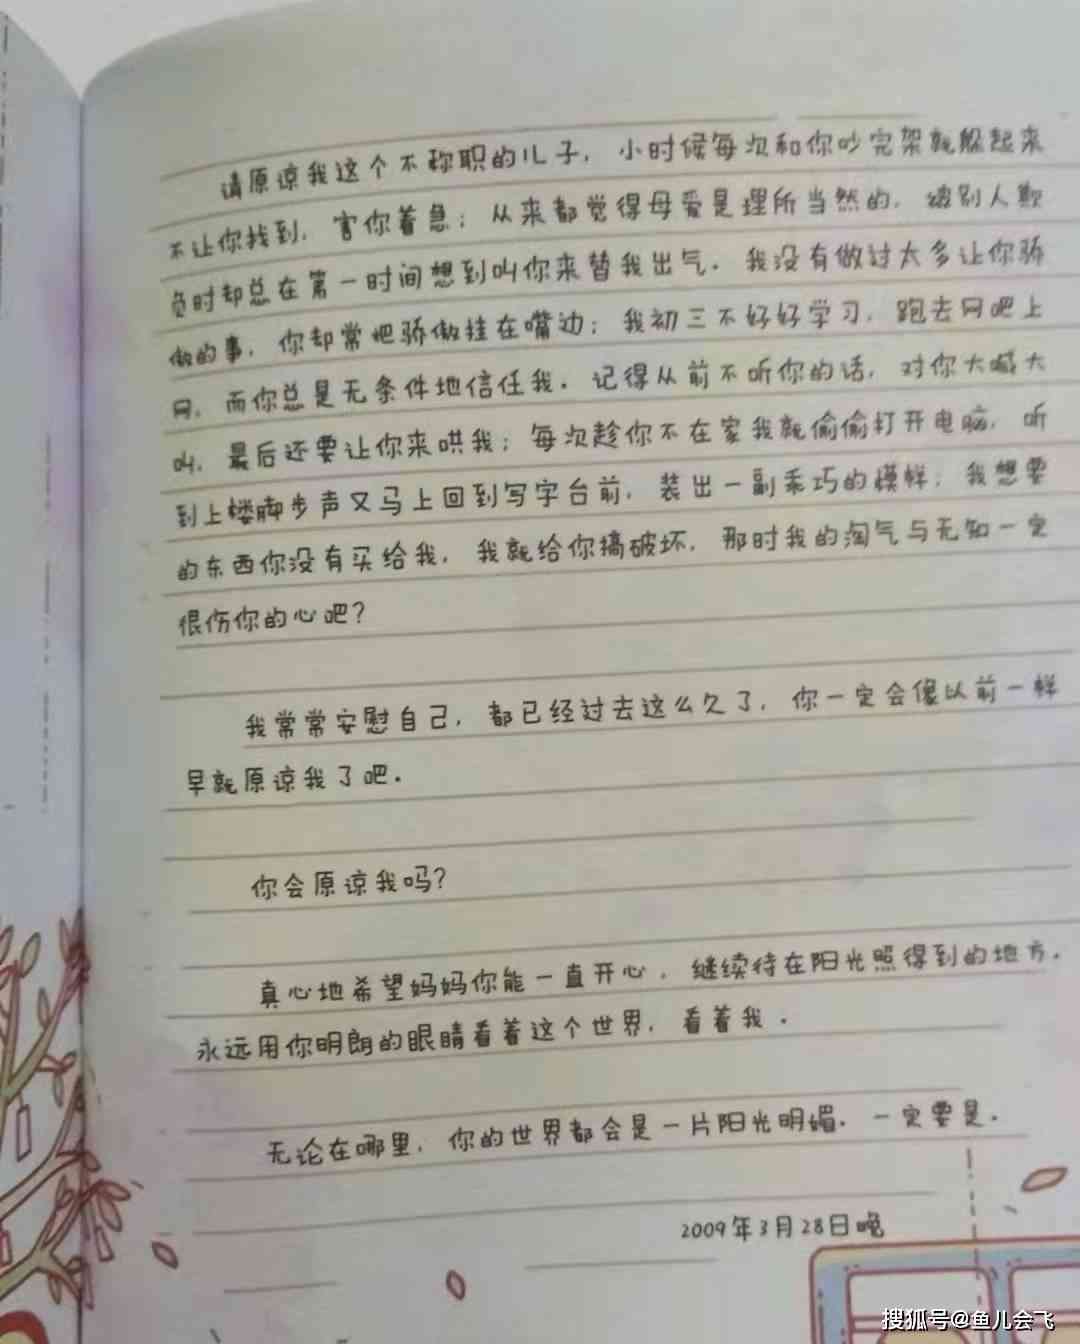 请原谅我这个不称职的儿子，小时候每次和你吵完架就躲起来
不让你找到，害你着急；从来都觉得母爱是理所当然的，被别人欺
负时却总在第一时间想到叫你来替我出气。我没有做过太多让你骄
傲的事，你却常把骄傲挂在嘴边；我初三不好好学习，跑去网吧上
网，而你总是无条件地信任我。记得从前不听你的话，对你大喊大
叫，最后还要让你来哄我；每次趁你不在家我就偷偷打开电脑，听
到上楼脚步声又马上回到写字台前，装出一副乖巧的模样；我想要
的东西你没有买给我，我就给你搞破坏，那时我的淘气与无知一定
很伤你的心吧？
我常常安慰自己，都已经过去这么久了，你一定会像以前一样
早就原谅我了吧。
你会原谅我吗？
真心地希望妈妈你能一直开心，继续待在阳光照得到的地方。
永远用你明朗的眼睛看着这个世界，看着我。
无论在哪里，你的世界都会是一片阳光明媚。一定要是。
2009年3月28日晚
搜狐号@鱼儿会飞